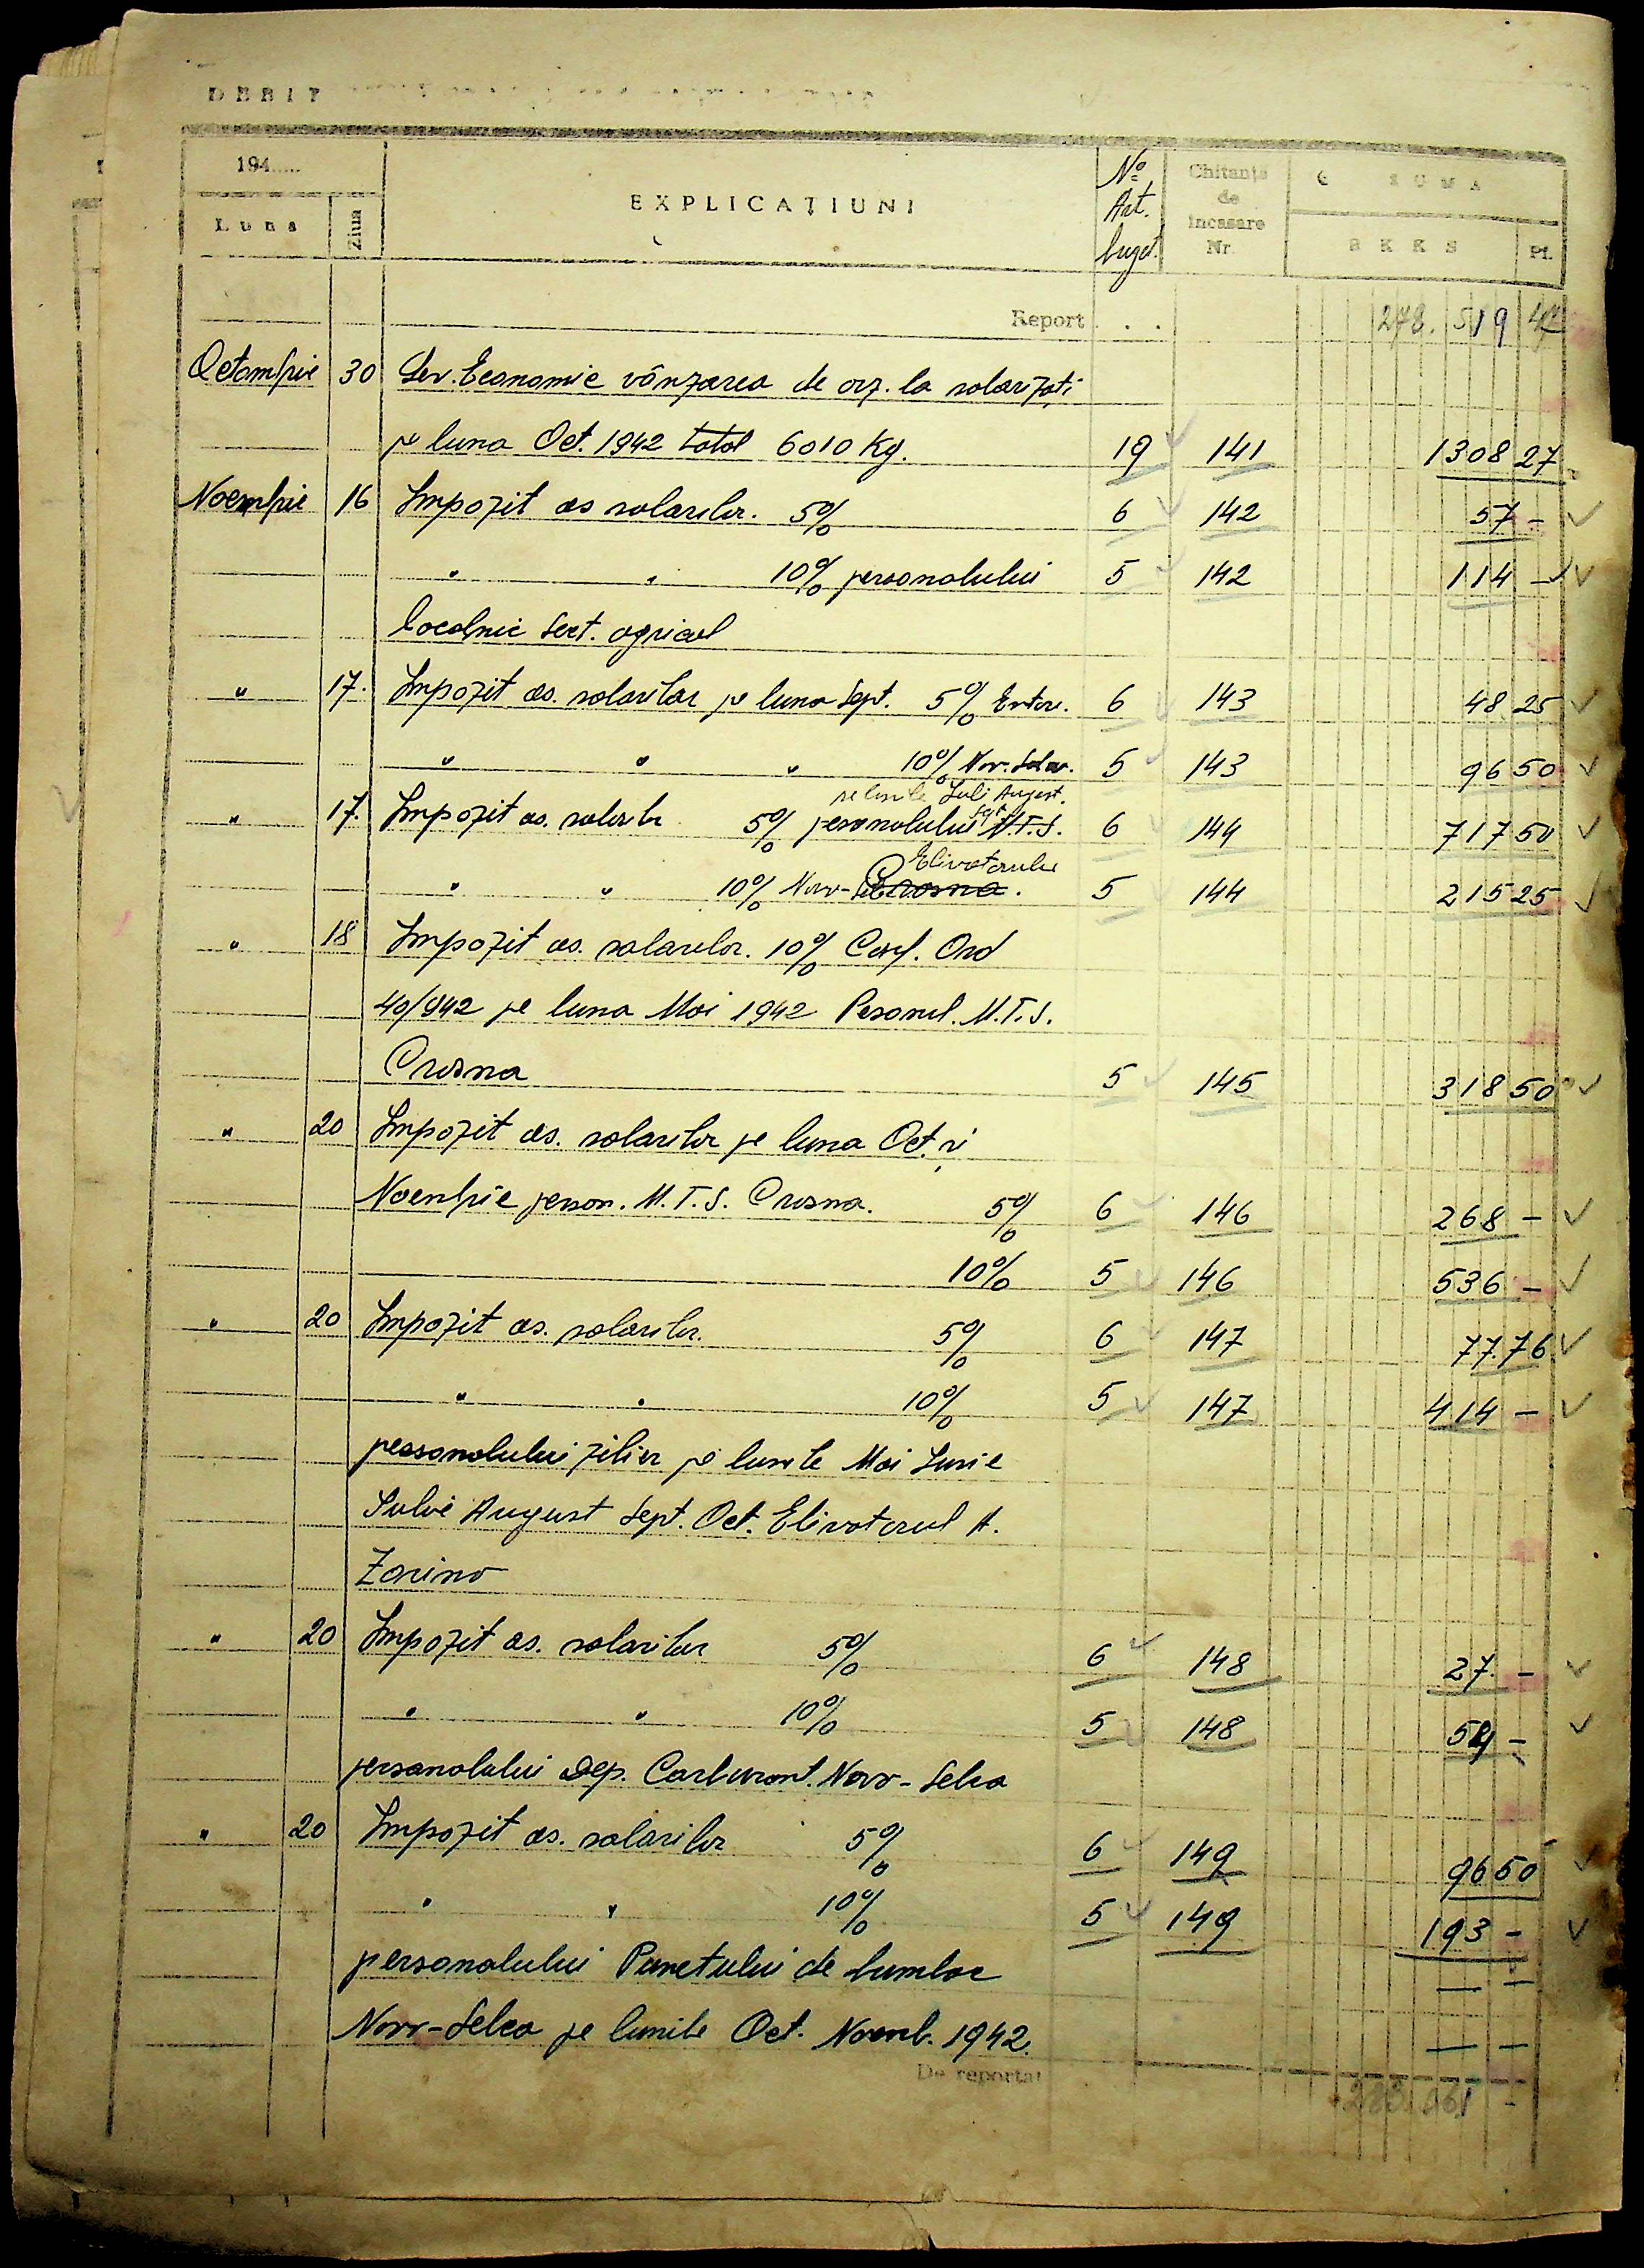 DEBIT
194.....
Luna Ziua EXPLICAŢIUNI No Art. buget. Chitanţa de încasare Nr. SUMA RKKS Pf.
Report . . . 278. 519 47
Octombrie 30 Serv. Economic vânzarea de orz. la salarizaţi
pe luna Oct. 1942 total 6010 Kg. 19 141 1308 27
Noembrie 16 Impozit as salariilor. 5% 6 142 57 -
" " 10% personalului 5 142 114 -
localnic Sect. agricol
" 17. Impozit as. salariilor pe luna Sept. 5% 6 143 48 25
" " " 10% Nov. Selca. 5 143 96 50
pe lunile Iuli August. Sept.
" 17. Impozit as. salariilor 5% personalului M.T.S. 6 144 717 50
Elivatorului
" " 10% Novo- 5 144 215 25
" 18 Impozit as. salariilor. 10% Conf. Ord
40/942 pe luna Mai 1942 Personal. M.T.S.
Crosna 5 145 318 50
" 20 Impozit as. salariilor pe luna Oct. şi
Noembrie person. M.T.S. Crosna. 5% 6 146 268 -
10% 5 146 536 -
" 20 Impozit as. salariilor. 5% 6 147 77.76
" " 10% 5 147 414 -
personalului zilier pe lunile Mai Iunie
Iulie August Sept. Oct. Elivatorul A.
Zarino
" 20 Impozit as. salariilor 5% 6 148 27. -
" " 10% 5 148 54 -
personalului Dep. Carburant. Novo-Selca
" 20 Impozit as. salariilor 5% 6 149 96 50
" " 10% 5 149 193 -
personalului Punctului de bumbac
Novo-Selca pe lunile Oct. Noemb. 1942.
De reportat 283. 061 -